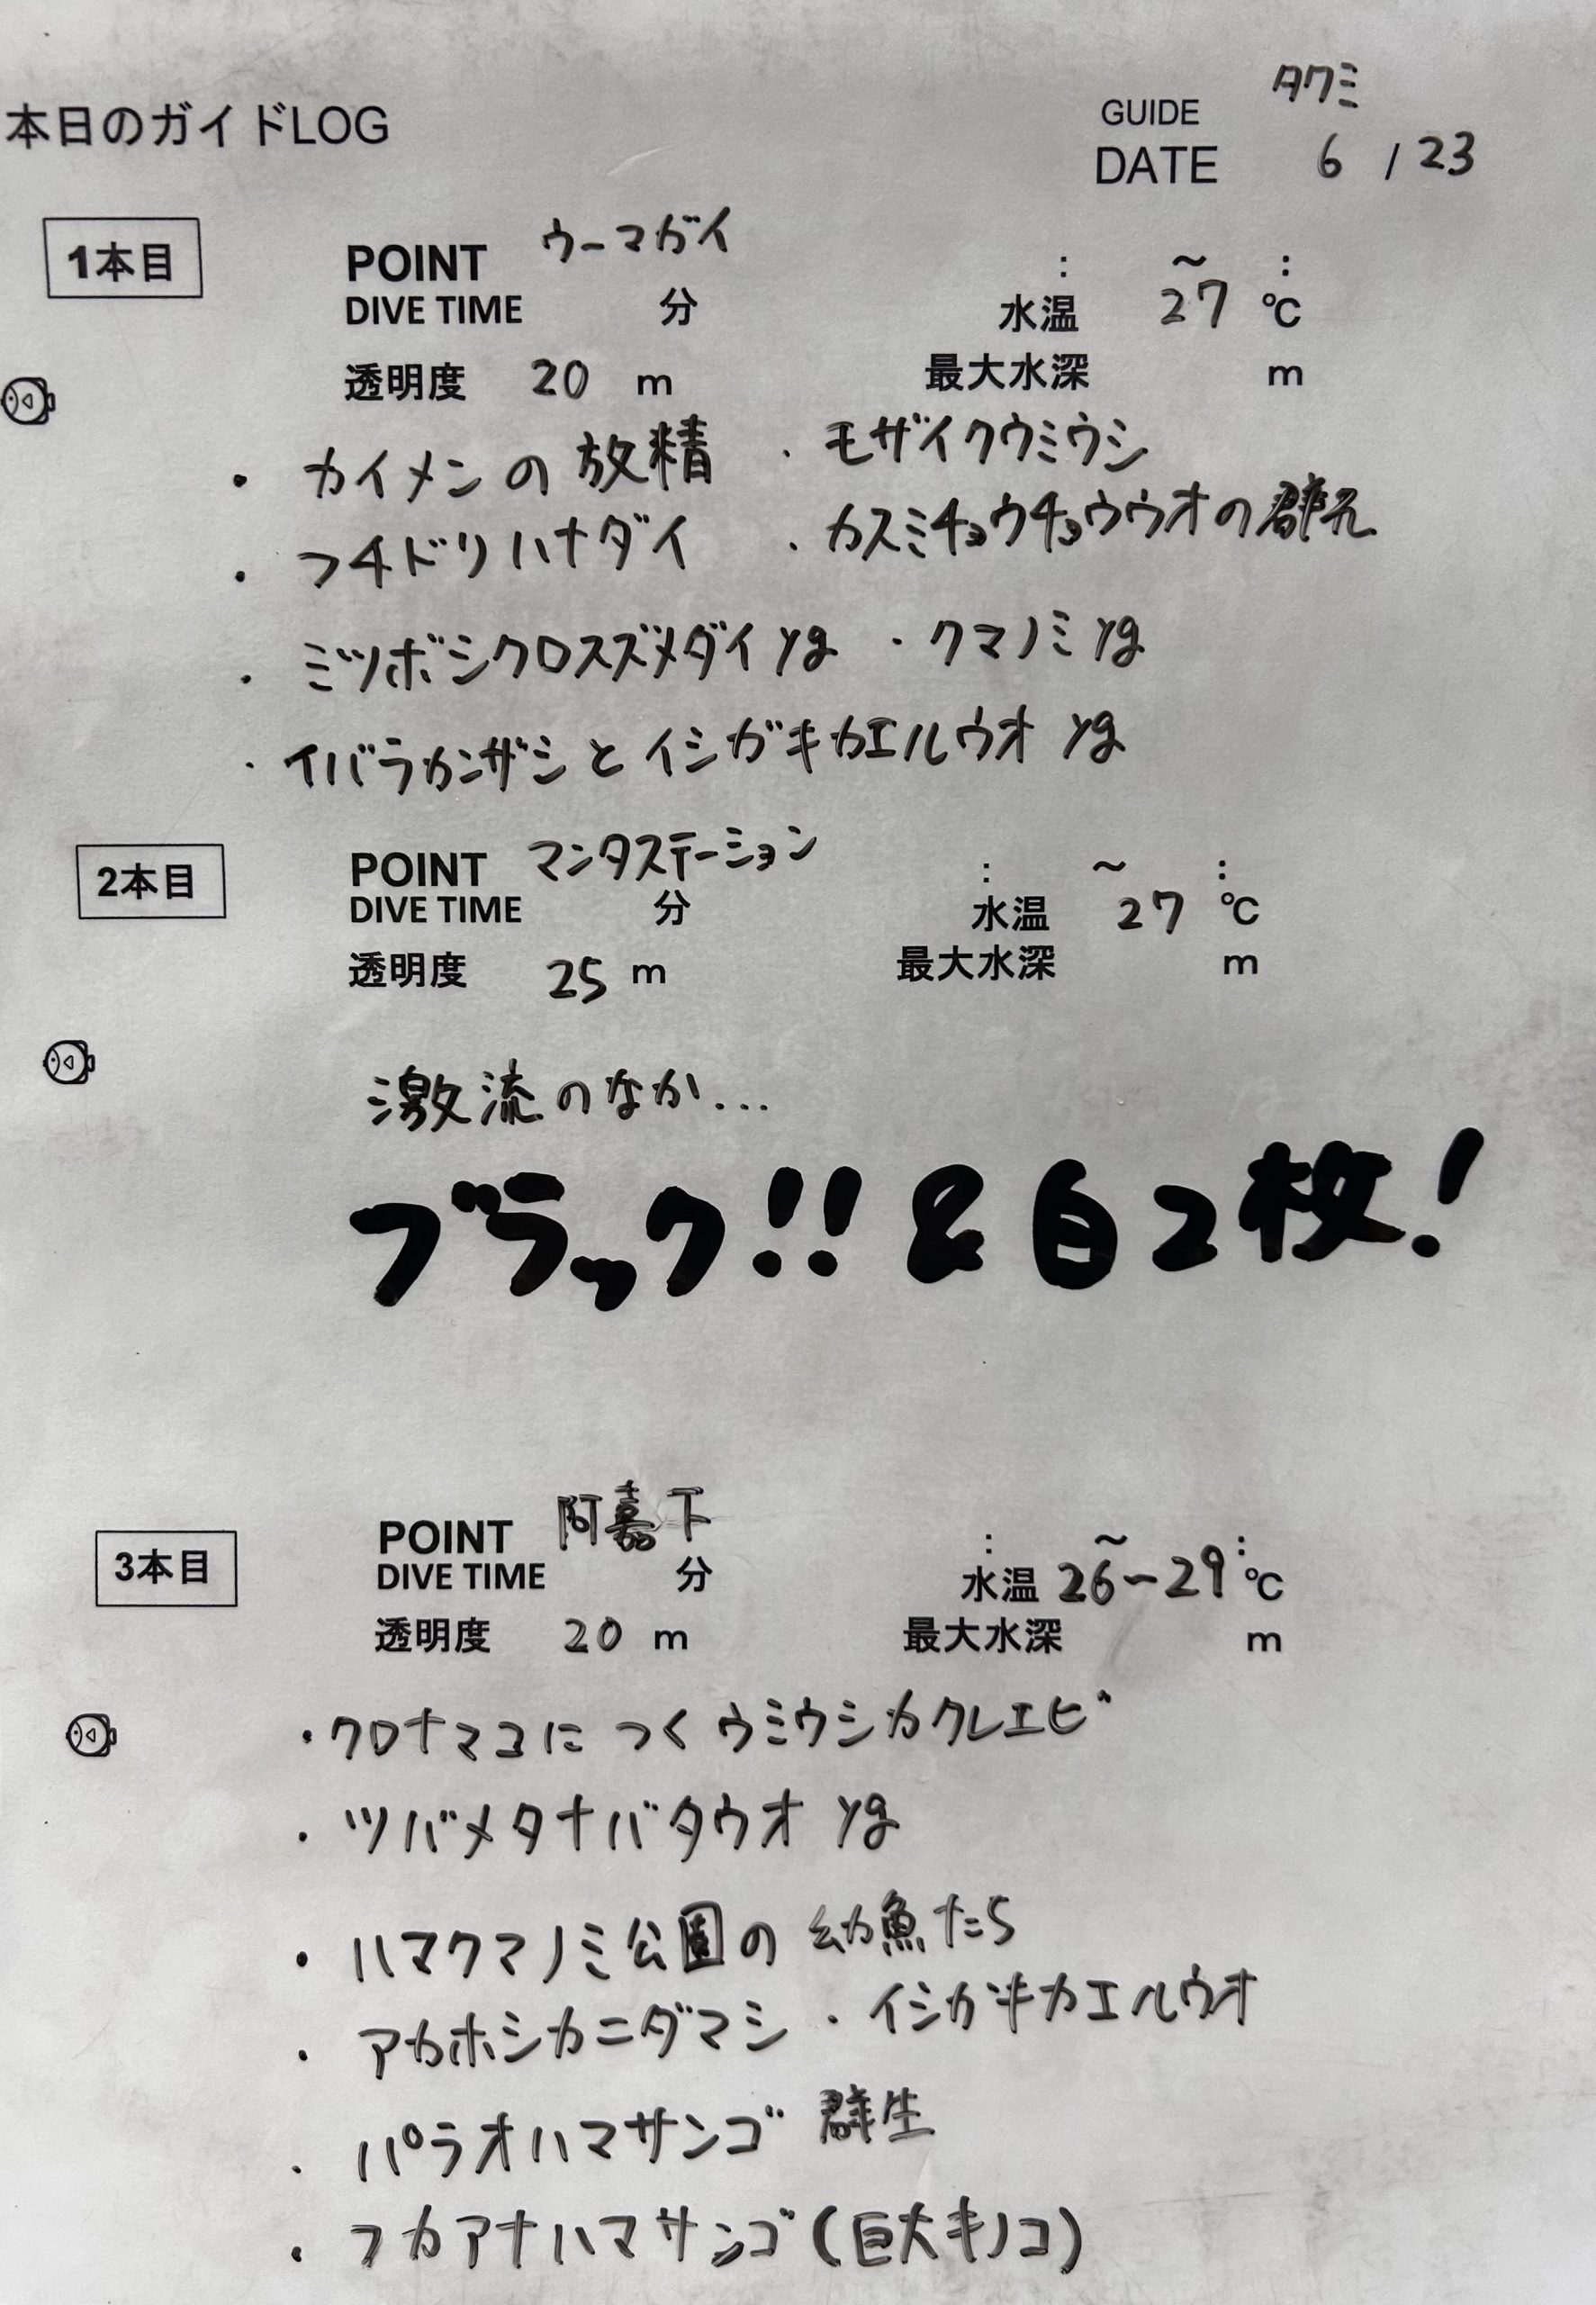 本日のガイドLOG
GUIDE タクミ
DATE 6 / 23
1本目
POINT ウーマガイ : ~ :
DIVE TIME 分 水温 27 ℃
透明度 20 m 最大水深 m
・カイメンの放精 ・モザイクウミウシ
・フチドリハナダイ ・カスミチョウチョウウオの群れ
・ミツボシクロスズメダイyg ・クマノミyg
・イバラカンザシとイシガキカエルウオ yg
2本目
POINT マンタステーション : ~ :
DIVE TIME 分 水温 27 ℃
透明度 25 m 最大水深 m
激流のなか...
ブラック!! & 白2枚!
3本目
POINT 阿嘉下 : ~ :
DIVE TIME 分 水温 26~29 ℃
透明度 20 m 最大水深 m
・クロナマコにつくウミウシカクレエビ
・ツバメタナバタウオ yg
・ハマクマノミ公園の幼魚たち
・アカホシカニダマシ ・イシガキカエルウオ
・パラオハマサンゴ 群生
・フカアナハマサンゴ(巨大キノコ)